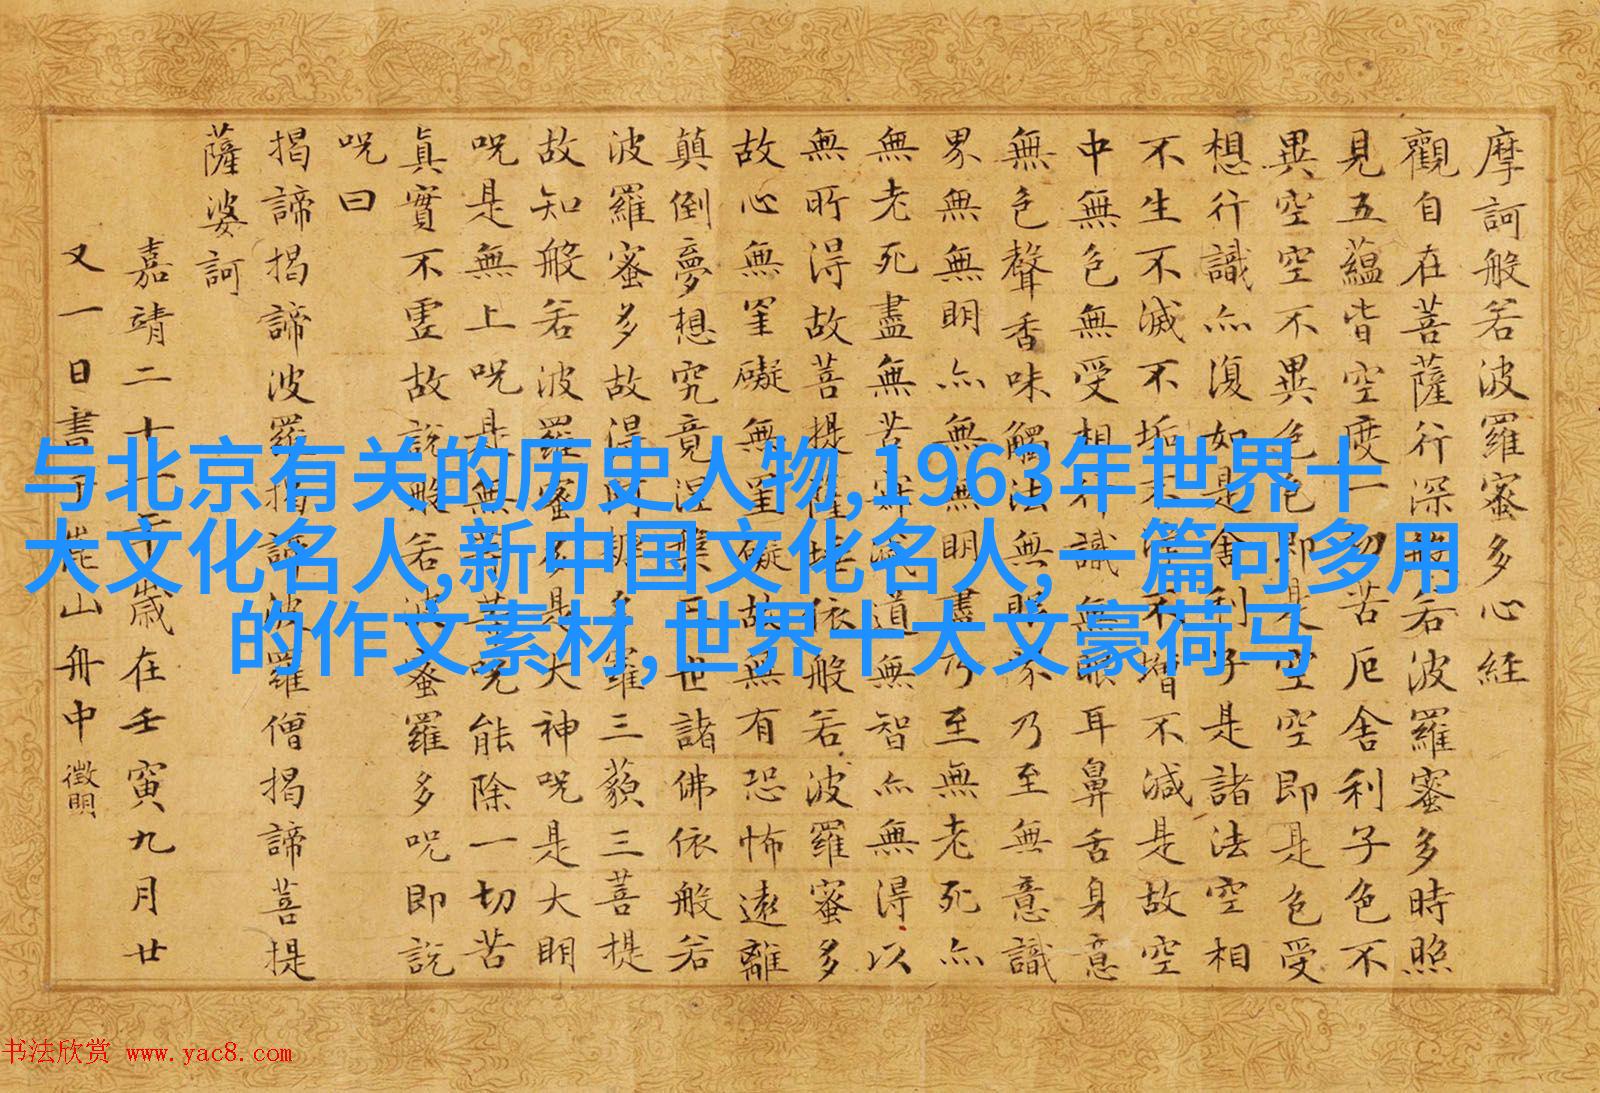 摩訶般若波羅蜜多心経
觀自在菩薩行深般若波羅蜜多時照
見五蘊皆空度一切苦厄舍利子色不
異空空不異色色即是空空即是色受
想行識亦復如是舍利子是諸法空相
不生不滅不垢不淨不增不減是故空
中無色無受想行識無眼耳鼻舌身意
無色聲香味觸法無眼界乃至無意識
界無無明亦無無明盡乃至無老死亦
無老死盡無苦滅道無智亦無得以
無所得故菩提薩埵依般若波羅蜜多
故心無罣礙無罣礙故無有恐怖遠離
顛倒夢想究竟涅槃三世諸佛依般若
波羅蜜多故得阿耨多羅三藐三菩提
故知般若波羅蜜多是大神呪是大明
呪是無上呪是無等等呪能除一切苦
真實不虛故說般若波羅蜜多呪即說
呪曰
揭諦揭諦波羅揭諦波羅僧揭諦菩提
薩婆訶
嘉靖二十一年歲在壬寅九月廿
又一日書于崑山舟中 徵明
与北京有关的历史人物,1963年世界十
大文化名人,新中国文化名人,一篇可多用
的作文素材,世界十大文豪荷马
书法欣赏 www.yac8.com